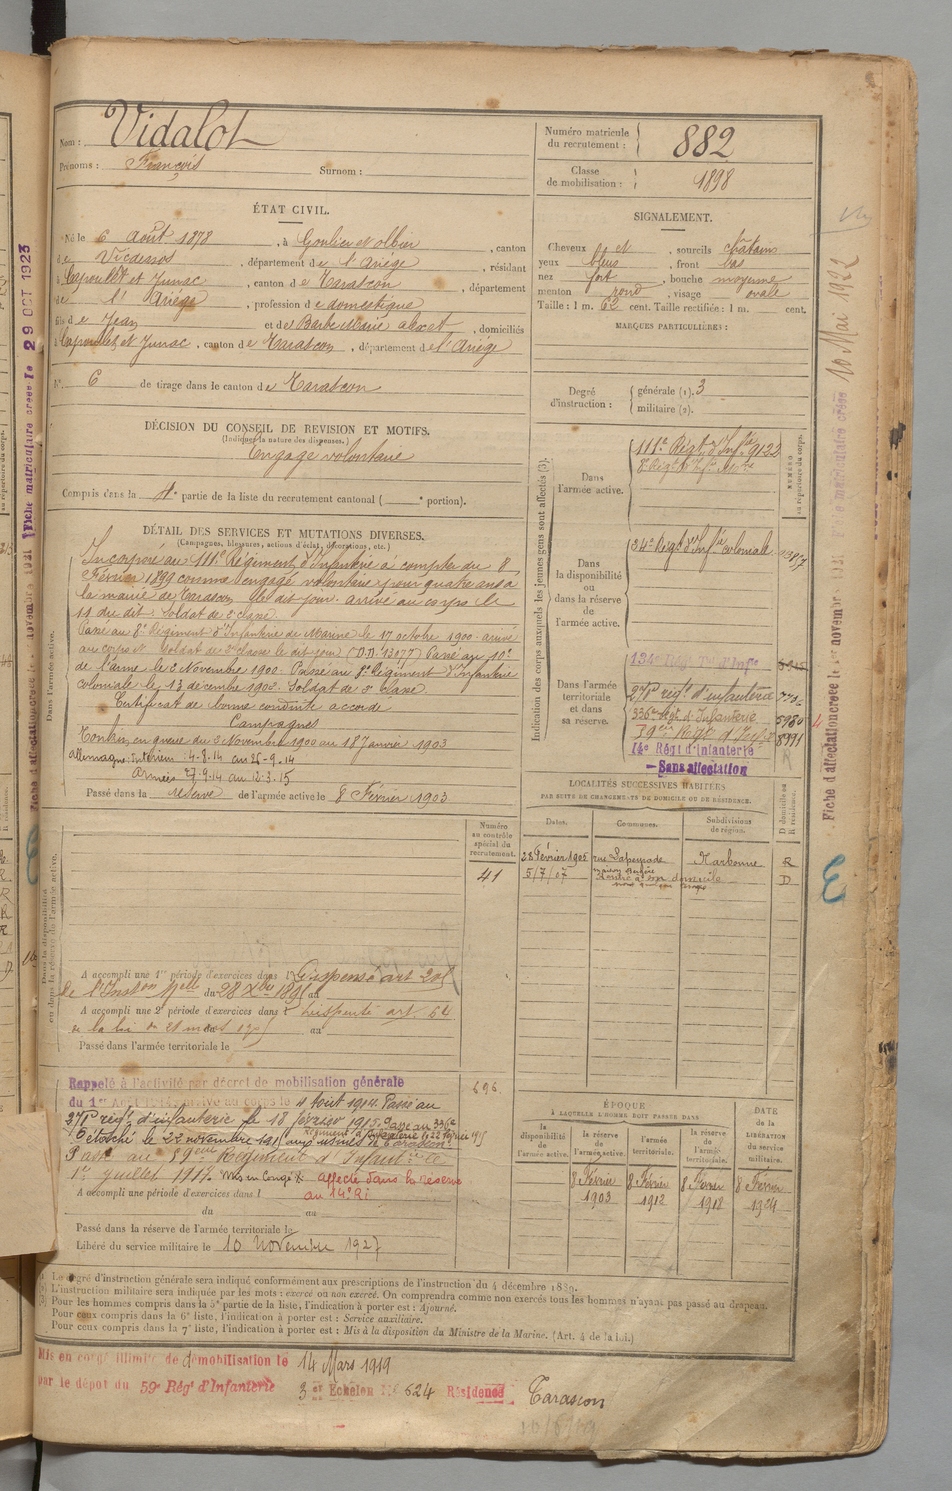 Nom : Vidalot
Prénoms : François Surnom :
Numéro matricule du recrutement : 882
Classe de mobilisation : 1898
ÉTAT CIVIL.
Né le 6 août 1878, à Goulier et olbier, canton
de Vicdessos, département de l'Ariège, résidant
à Capoulet et Junac, canton de Tarascon, département
de l'Ariège, profession de domestique
fils de Jean et de Barbe Marie alexet, domiciliés
à Capoulet et Junac, canton de Tarascon, département de l'Ariège
N° 6 de tirage dans le canton de Tarascon
SIGNALEMENT.
Cheveux et sourcils châtains
yeux bleus, front bas
nez fort, bouche moyenne
menton rond, visage ovale
Taille : 1 m. 62 cent. Taille rectifiée : 1 m. cent.
MARQUES PARTICULIÈRES :
Degré d'instruction : générale (1). 3
militaire (2).
DÉCISION DU CONSEIL DE REVISION ET MOTIFS.
(Indiquer la nature des dispenses.)
Engagé volontaire
Compris dans la 4e partie de la liste du recrutement cantonal ( e portion).
DÉTAIL DES SERVICES ET MUTATIONS DIVERSES.
(Campagnes, blessures, actions d'éclat, décorations, etc.)
Dans l'armée active.
Incorporé au 111e Régiment d'Infanterie à compter du 8
Février 1899 comme engagé volontaire pour quatre ans à
la mairie de Tarascon le dit jour. arrivé au corps le
11 du dit. Soldat de 2e classe.
Passé au 8e Régiment d'Infanterie de Marine le 17 octobre 1900 arrivé
au corps et soldat de 2e classe le dit jour (D.D. 13077) Passé au 10e
de l'arme le 2 Novembre 1900. Passé au 8e Régiment d'Infanterie
coloniale le 13 décembre 1902. Soldat de 2e classe.
Certificat de bonne conduite accordé
Campagnes
Tonkin en guerre du 3 Novembre 1900 au 18 Janvier 1903
Allemagne : Intérieur : 4-8-14 au 26-9-14
Armées 27-9-14 au 12-3-15
Passé dans la réserve de l'armée active le 8 Février 1903
Indication des corps auxquels les jeunes gens sont affectés (3).
NUMÉRO au répertoire du corps.
Dans l'armée active.
111e Régt d'Infie 9122
Dans la disponibilité ou dans la réserve de l'armée active.
24e Régt d'Infie coloniale
Dans l'armée territoriale et dans sa réserve.
134e Régt Tal d'Infie
271e régt d'infanterie
336e Régt d'Infanterie 5980
14e Régt d'Infanterie
Sans affectation
LOCALITÉS SUCCESSIVES HABITÉES
PAR SUITE DE CHANGEMENTS DE DOMICILE OU DE RÉSIDENCE.
Dates. Communes. Subdivisions de région. D domicile ou R résidence.
28 Février 1905 rue Lapeyrade Narbonne R
5/7/07 Rentré à son domicile D
Dans la disponibilité ou dans la réserve de l'armée active.
Numéro au contrôle spécial du recrutement.
41
A accompli une 1re période d'exercices dans l Dispensé art 205
de l'Inston Melle du 28 Xbre 1895 au
A accompli une 2e période d'exercices dans l Dispensé art 54
de la loi du 21 mars 1905 au
Passé dans l'armée territoriale le
Rappelé à l'activité par décret de mobilisation générale
du 1er Août 1914. Arrivé au corps le 4 Août 1914. Passé au
271e régt d'infanterie le 18 février 1915. Passé au 336e
Régiment d'Infanterie le 22 février 1915
Détaché le 22 novembre 1915 aux usines de Tarascon.
Passé au 59ème Régiment d'Infanterie le
1er juillet 1917. Mis en Congé affecté dans la réserve
au 14e R.I
696
A accompli une période d'exercices dans l
du au
Passé dans la réserve de l'armée territoriale le
Libéré du service militaire le 10 novembre 1927
ÉPOQUE
À LAQUELLE L'HOMME DOIT PASSER DANS
la disponibilité de l'armée active.
la réserve de l'armée active.
l'armée territoriale.
la réserve de l'armée territoriale.
DATE DE LA LIBÉRATION DU service militaire.
8 Février 1903
8 Février 1912
8 Février 1918
8 Février 1924
(1) Le degré d'instruction générale sera indiqué conformément aux prescriptions de l'instruction du 4 décembre 1889.
(2) L'instruction militaire sera indiquée par les mots : exercé ou non exercé. On comprendra comme non exercés tous les hommes n'ayant pas passé au drapeau.
(3) Pour les hommes compris dans la 5e partie de la liste, l'indication à porter est : Ajourné.
Pour ceux compris dans la 6e liste, l'indication à porter est : Service auxiliaire.
Pour ceux compris dans la 7e liste, l'indication à porter est : Mis à la disposition du Ministre de la Marine. (Art. 4 de la loi.)
Mis en congé illimité de démobilisation le 14 Mars 1919
par le dépôt du 59e Régt d'Infanterie 3 er Echelon No 524 Résidence Tarascon
Fiche matriculaire créée le 29 OCT 1923
10 Mai 1922
Fiche d'affectation créée le 1er novembre 1931